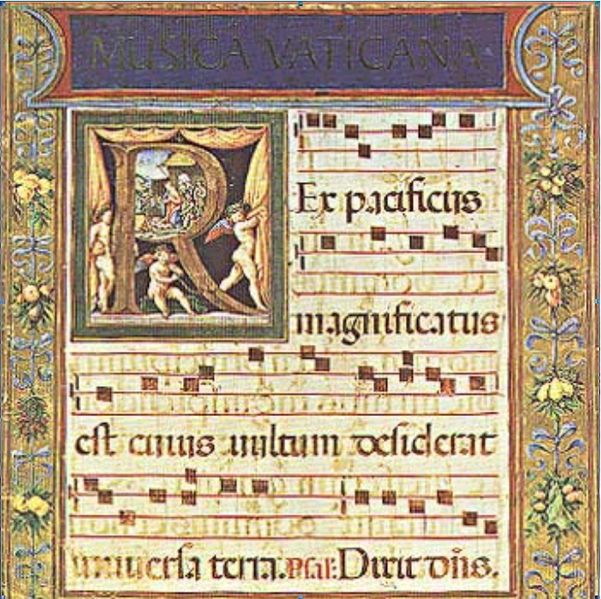 MUSICA VATICANA
REx pacificus
magnificatus
est cuius vultum desiderat
universa terra. Psal: Dixit dn̄s.